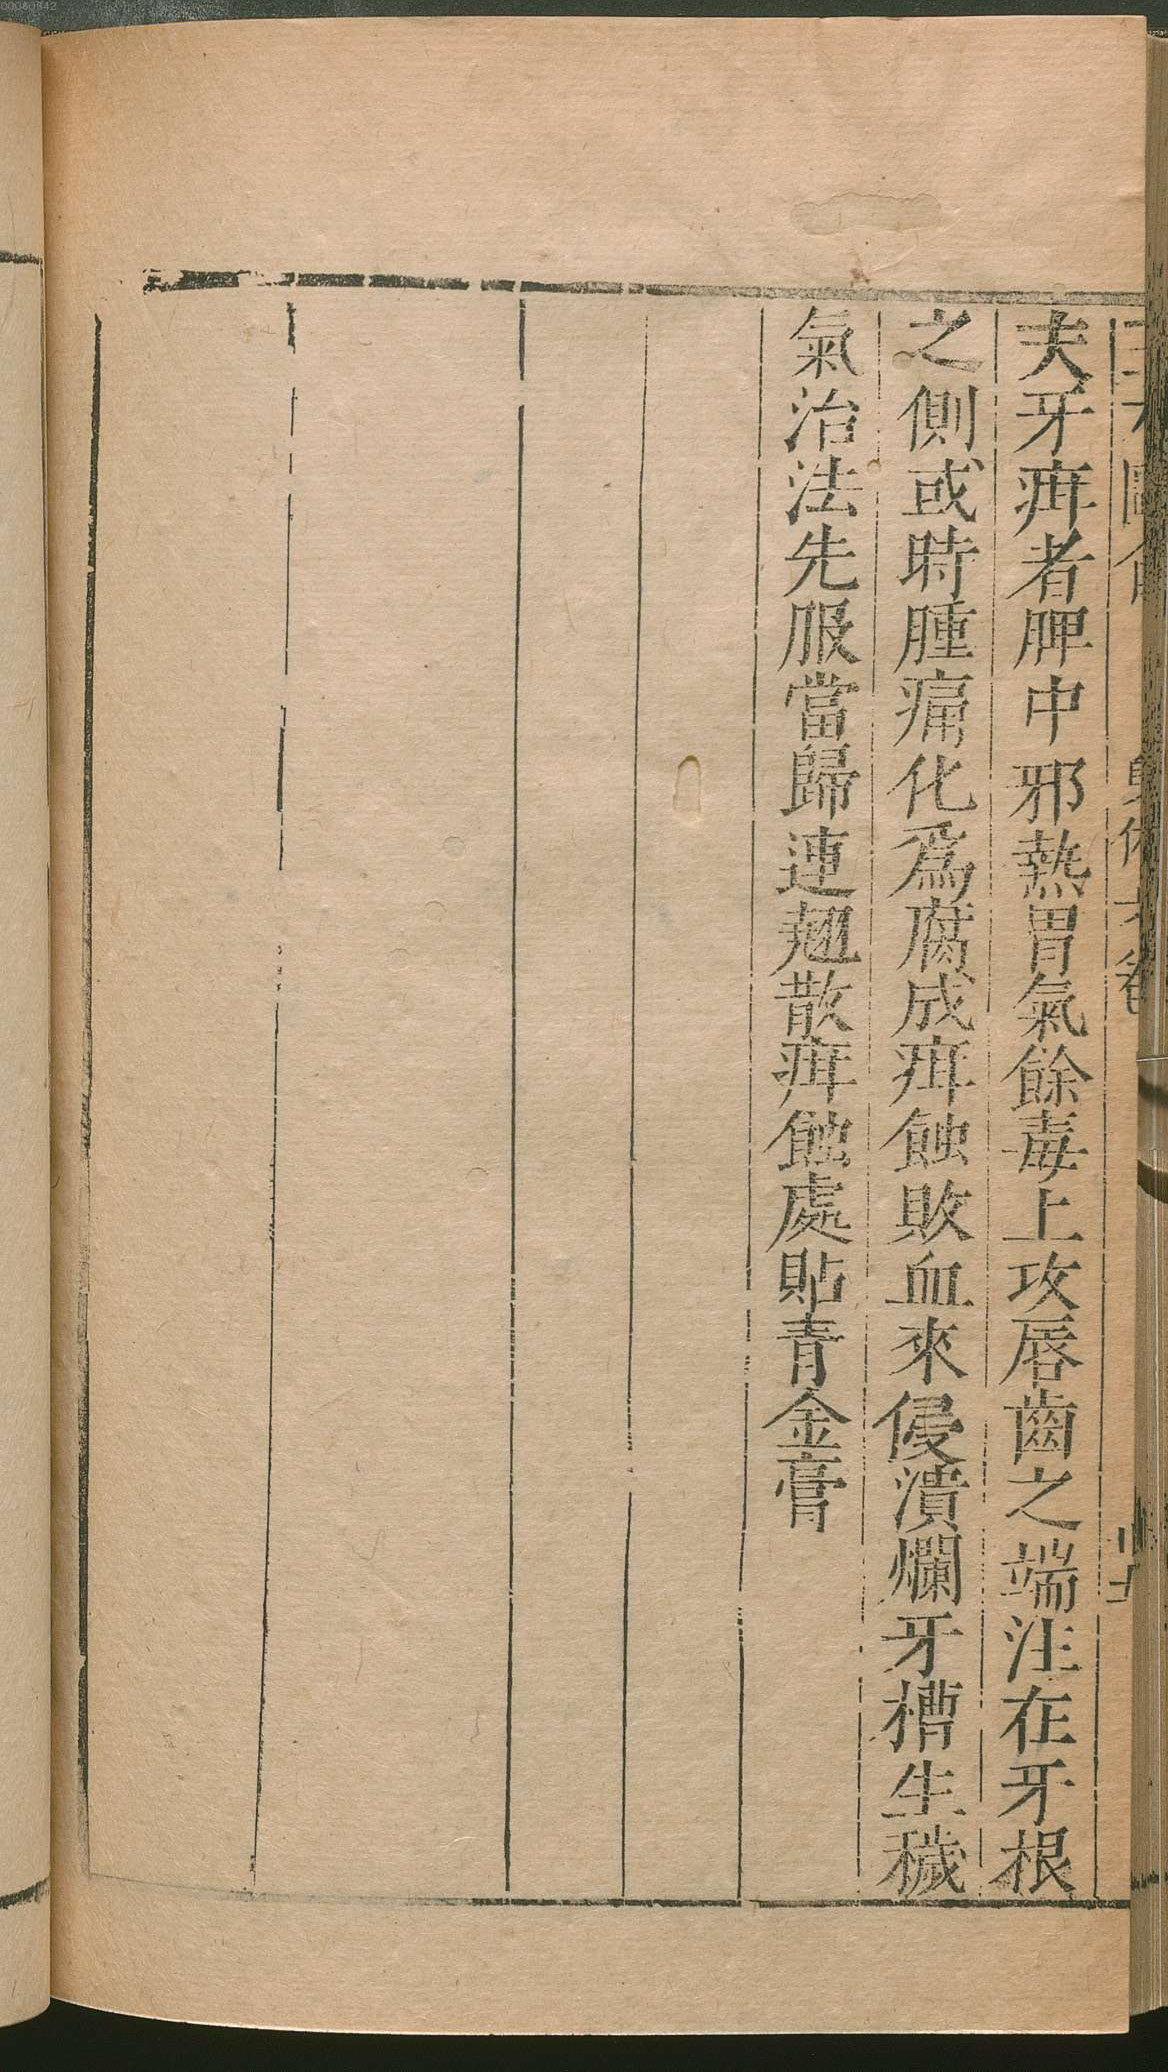 夫牙疳者脾中邪熱胃氣餘毒上攻唇齒之端注在牙根
之側或時腫痛化爲腐成疳蝕敗血來侵潰爛牙槽生穢
氣治法先服當歸連翹散疳蝕處貼青金膏